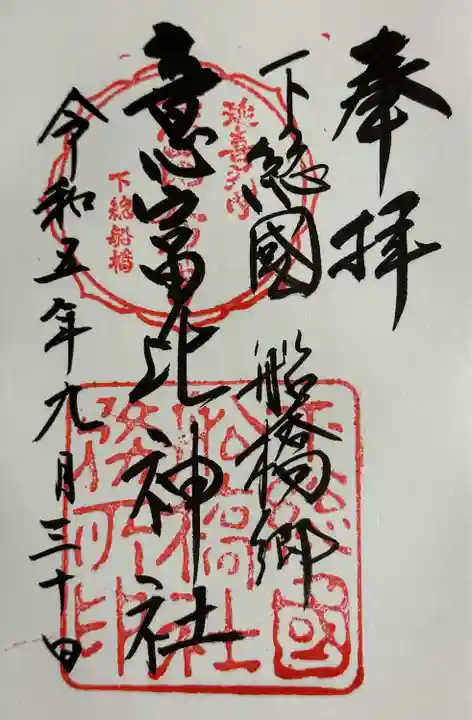 奉拝
下総國 船橋郷
意富比神社
令和五年九月三十日
下総船橋